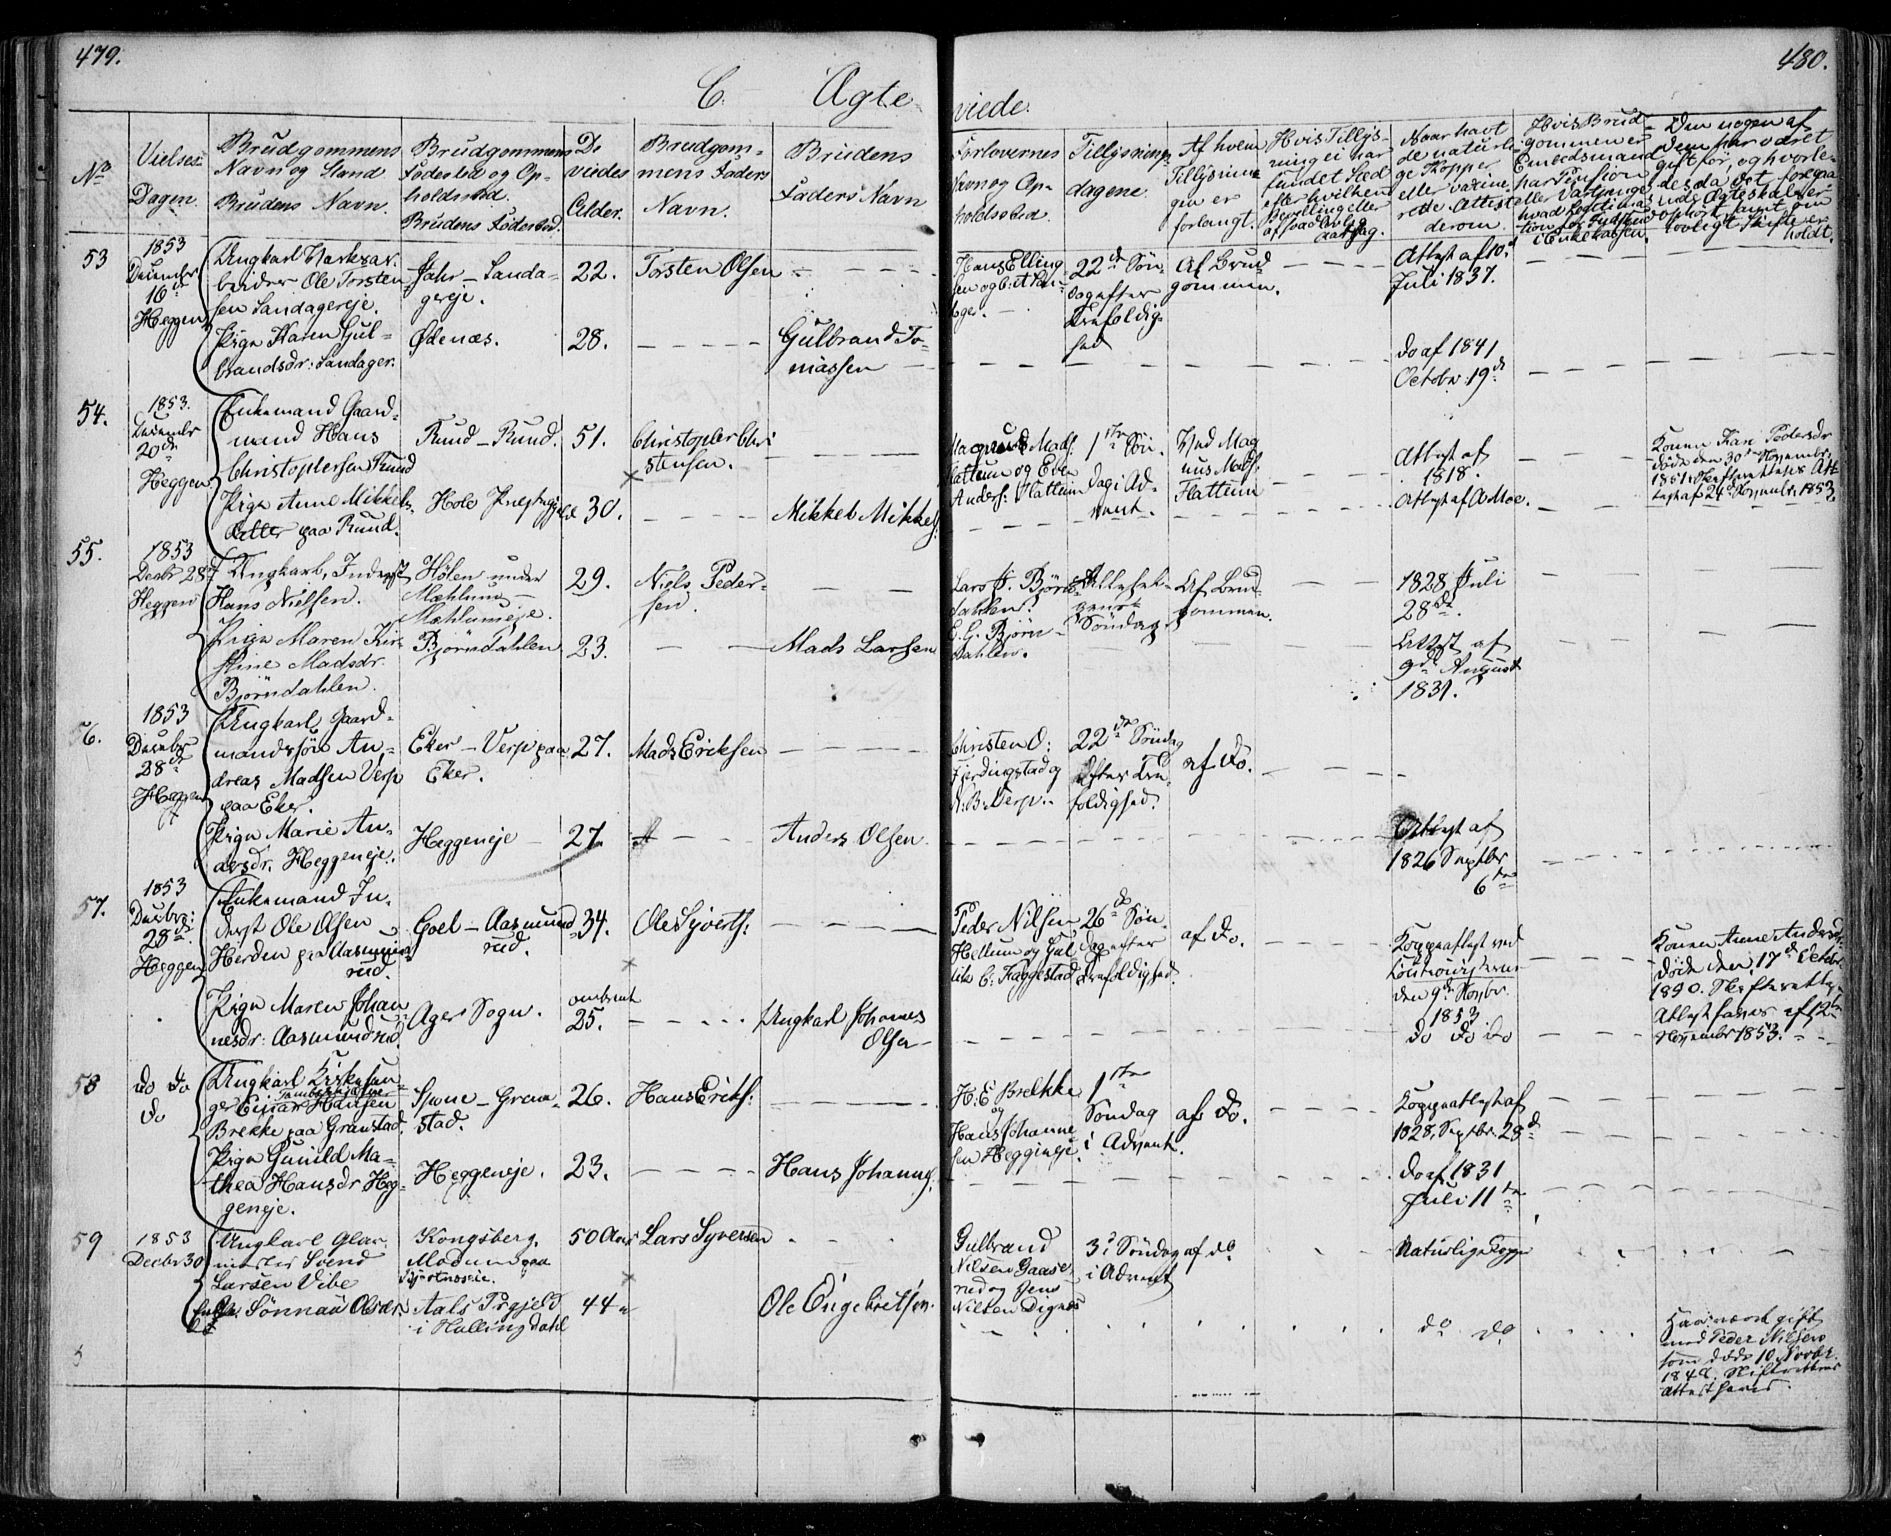 479.
480.
C. Ægte
viede.
No
Vielses-
Dagen.
Brudgommens
Navn og Stand
Brudens Navn.
Brudgommens
Fødested og Op-
holdssted.
Brudens Fødested.
De
viedes
Alder.
Brudgom-
mens Faders
Navn.
Brudens
Faders Navn
Forlovernes
Navn og Op-
holdssted.
Tillysnings-
dagene.
Af hvem
Tillysnin-
gen er
forlangt.
Hvis Tillys-
ning ei har
fundet Sted
efter hvilken
Bevilling eller
af hvad Anlag
Naar havt
de naturli-
ge Kopper
eller vaccine-
rede Attest
derom.
Hvis Brud-
gommen er
Eenledsmand
har Pension
eller Vartpenge
i Enkekassen.
Den nogen af
dem har været
gift før, og hvorle-
des da det forega-
aende Ægteskab er
ophørt samt om
lovligt Skifte er
holdt.
53
1853
December
16de
Heggen
Ungkarl
beider Ole Torsten-
sen Sandagereje.
Pige Karen Gul-
brandsdr: Sandager.
Jahr - Sanda-
gereje.
Ødenæs.
22.
28.
Torsten Olsen
Gulbrand To-
massen
Hans Elling-
sen og
22de Søn-
dag efter
Trefoldig-
hed
Af Brud-
gommen.
Attest af 10de
Juli 1837.
Do af 1841
Octobr. 19de
54.
1853.
December
20de
Heggen
Enkemand Gaard-
mand Hans
Christophersen Ruud
Pige Anne Mikkels-
datter paa Ruud.
Ruud - Ruud.
Hole Præstegjeld
51.
30.
Christopher Chri-
stensen.
Mikkel Mikkels:
Magnus Mads:
Flattum og Even
Anders: Flattum
1ste Søn-
dag i Ad-
vent.
Ved Mag-
nus Mads:
Flattum
Attest af
1818.
Attest af A Moe.
Konen Kari Pedersdr
døde den 30te Novembr.
1851. Skifterettens Att-
test af 24de Novembr. 1853.
55.
1853
Decbr 28de
Heggen
Ungkarl, Inderst
Hans Nielsen.
Pige Maren Kir-
stine Madsdr
Bjørndahlen.
Hølen under
Mæhlum -
Mæhlumeje.
Bjørndahlen
29.
23.
Niels Peder-
sen.
Mads Larsen
Lars P. Bjørn-
dahlen.
E. G. Bjørn-
dahlen.
Allehel-
gens
Søndag.
Af Brud-
gommen.
1828 Juli
28de.
Attest af
9de August
1831.
56.
1853
Decembr
28de
Heggen
Ungkarl Gaard-
mandssøn An-
dreas Madsen Verp
paa Eker.
Pige Marie An-
dersdr. Heggeneje.
Eker - Verp paa
Eker.
Heggeneje -
27.
27.
Mads Eriksen
Anders Olsen
Christen O:
Fjerdingstad og
N: B: Verp.
22de Søndag
efter Tre-
foldighed.
af Do.
Attest af
1826 Septbr
6te
57.
1853
Decbr:
28de.
Heggen
Enkemand In-
derst Ole Olsen
Hærden paa Aasmund-
rud.
Pige Maren Johan-
nesdr: Aasmundrud
Goel - Aasmund-
rud.
Ager Sogn.
34.
omtrent
25.
Ole Syverts:
Ungkarl Johannes
Olsen
Peder Nilsen
Hellum og Gul-
lik C: Faggestad
26de Søn-
dag efter
Trefoldighed.
af Do.
Koppeattest ved
den 9de Novbr.
1853
Do Do Do
Konen Anne Anders:
døde den 17de Octobr
Skifterettens
Attest haves af 12te
November 1853.
58
Do Do
Do
Ungkarl Kirkesan-
ger Einar Hansen
Brekke paa Granstad.
Pige Gunild Ma-
thea Hansdr Heg-
geneje.
Snone - Gran-
stad.
Heggeneje.
26.
23.
Hans Eriks:
Hans Johanns:
H: E Brekke
og
Hans Johanne-
sen Heggineje.
1ste
Søndag
i Advent.
af Do.
Koppeattest af
1828, Septbr. 28de
Do af 1831
Juli 11te
59
1853
Decbr 30
Ungkarl Glar-
mester Svend
Larsen Vibe
Enke Sønnau Olsdr.
Kongsberg,
Modum paa
Aals Prgjeld
i Hallingdahl
50 Aar
44
Lars Syversen
Ole Engebretsen.
Gulbrand
Nilsen Gaase-
rud og Jens
Nilsen Dignes
3d Søndag
i Advent
af do
Naturlige Kopper
do do
Har været gift
med Peder Nilsen
som døde 10 Novbr.
184 Skifterettens
Attest haves.